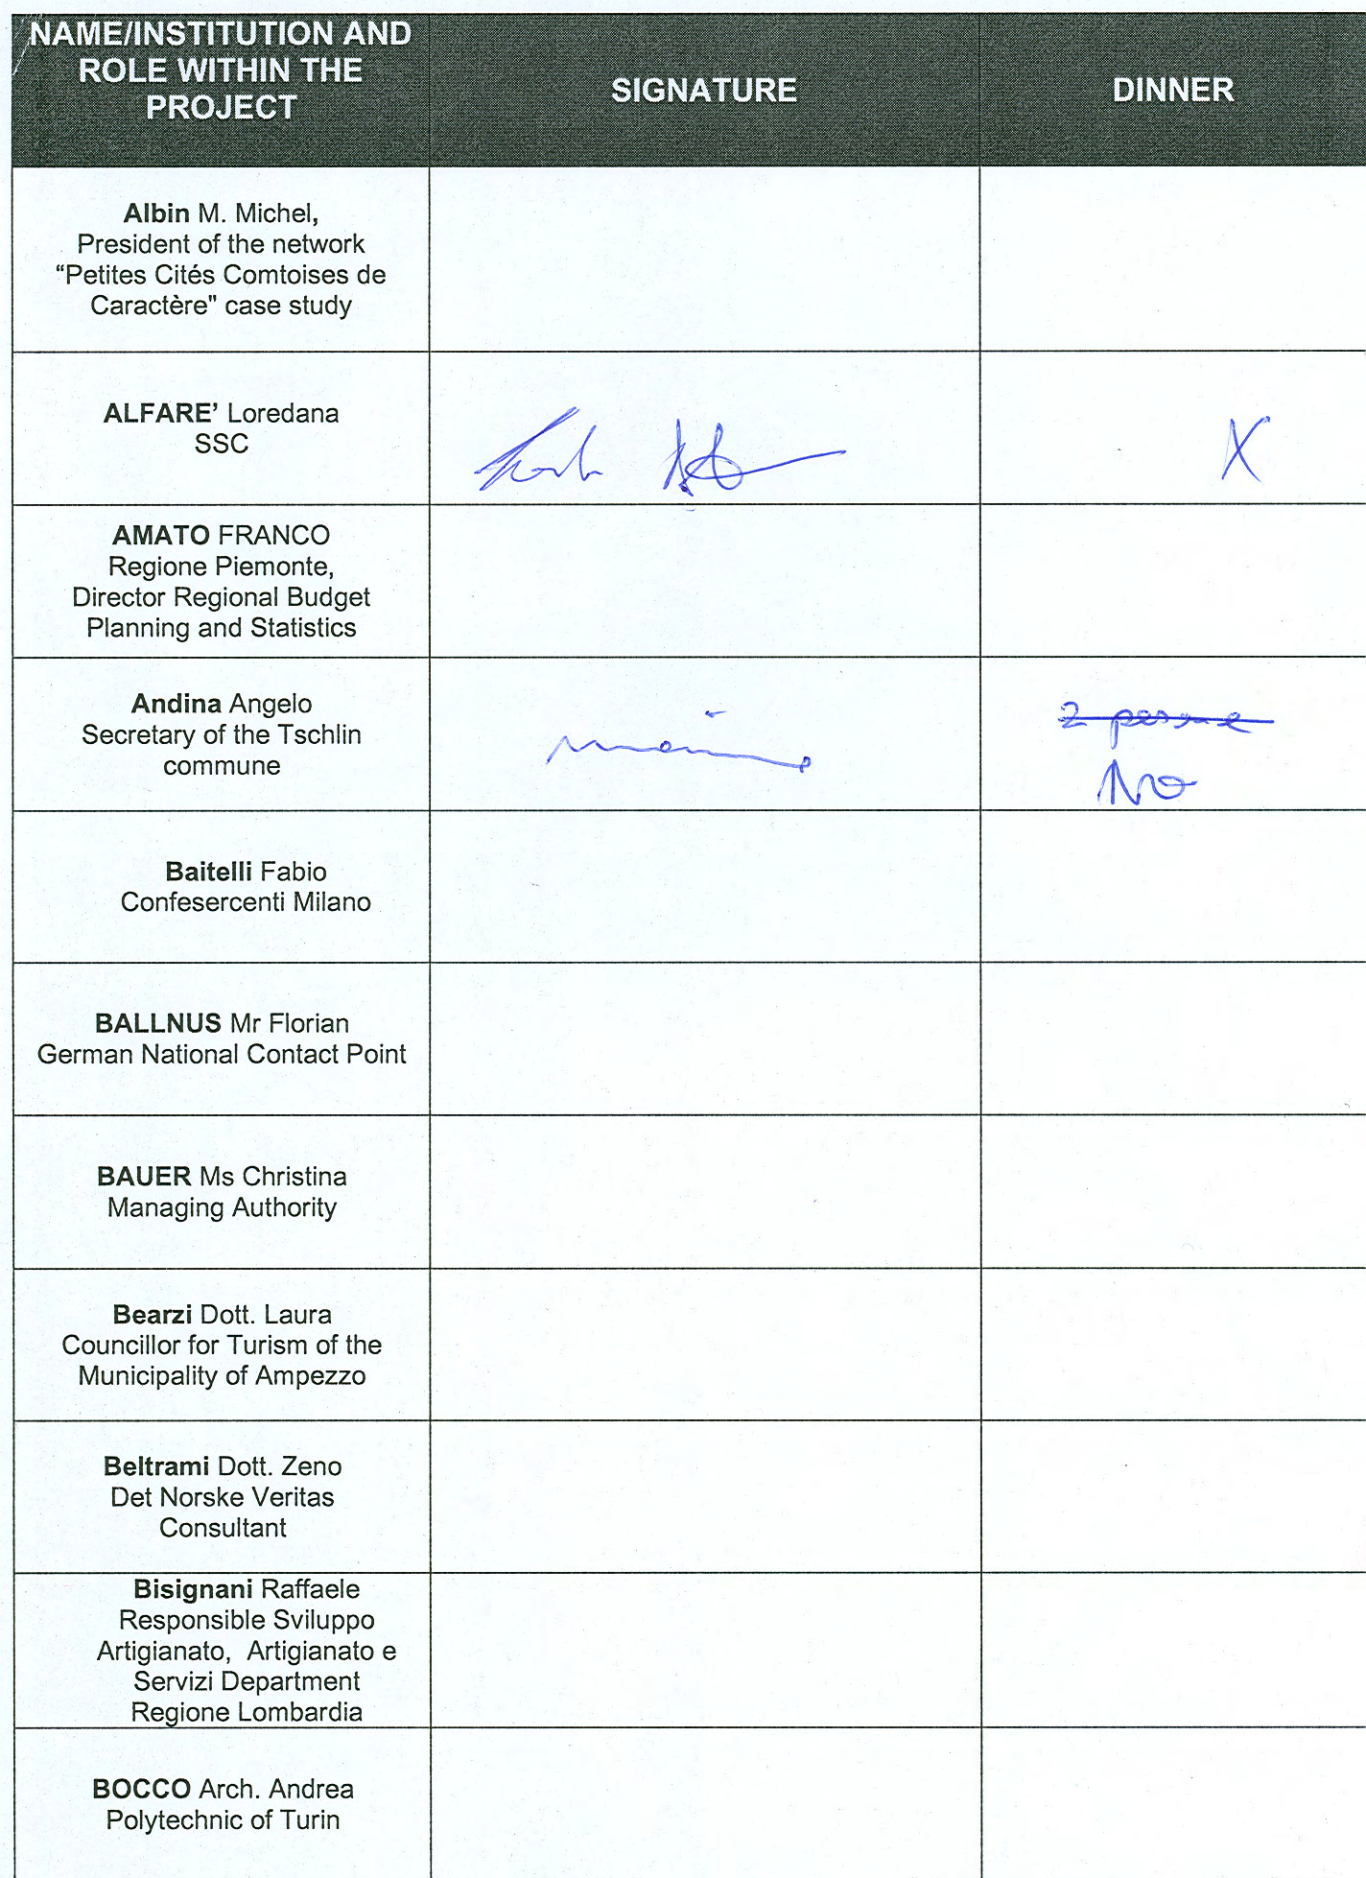 NAME/INSTITUTION AND
ROLE WITHIN THE
PROJECT
SIGNATURE
DINNER
Albin M. Michel,
President of the network
“Petites Cités Comtoises de
Caractère" case study
ALFARE’ Loredana
SSC
X
AMATO FRANCO
Regione Piemonte,
Director Regional Budget
Planning and Statistics
Andina Angelo
Secretary of the Tschlin
commune
2 persone
No
Baitelli Fabio
Confesercenti Milano
BALLNUS Mr Florian
German National Contact Point
BAUER Ms Christina
Managing Authority
Bearzi Dott. Laura
Councillor for Turism of the
Municipality of Ampezzo
Beltrami Dott. Zeno
Det Norske Veritas
Consultant
Bisignani Raffaele
Responsible Sviluppo
Artigianato, Artigianato e
Servizi Department
Regione Lombardia
BOCCO Arch. Andrea
Polytechnic of Turin